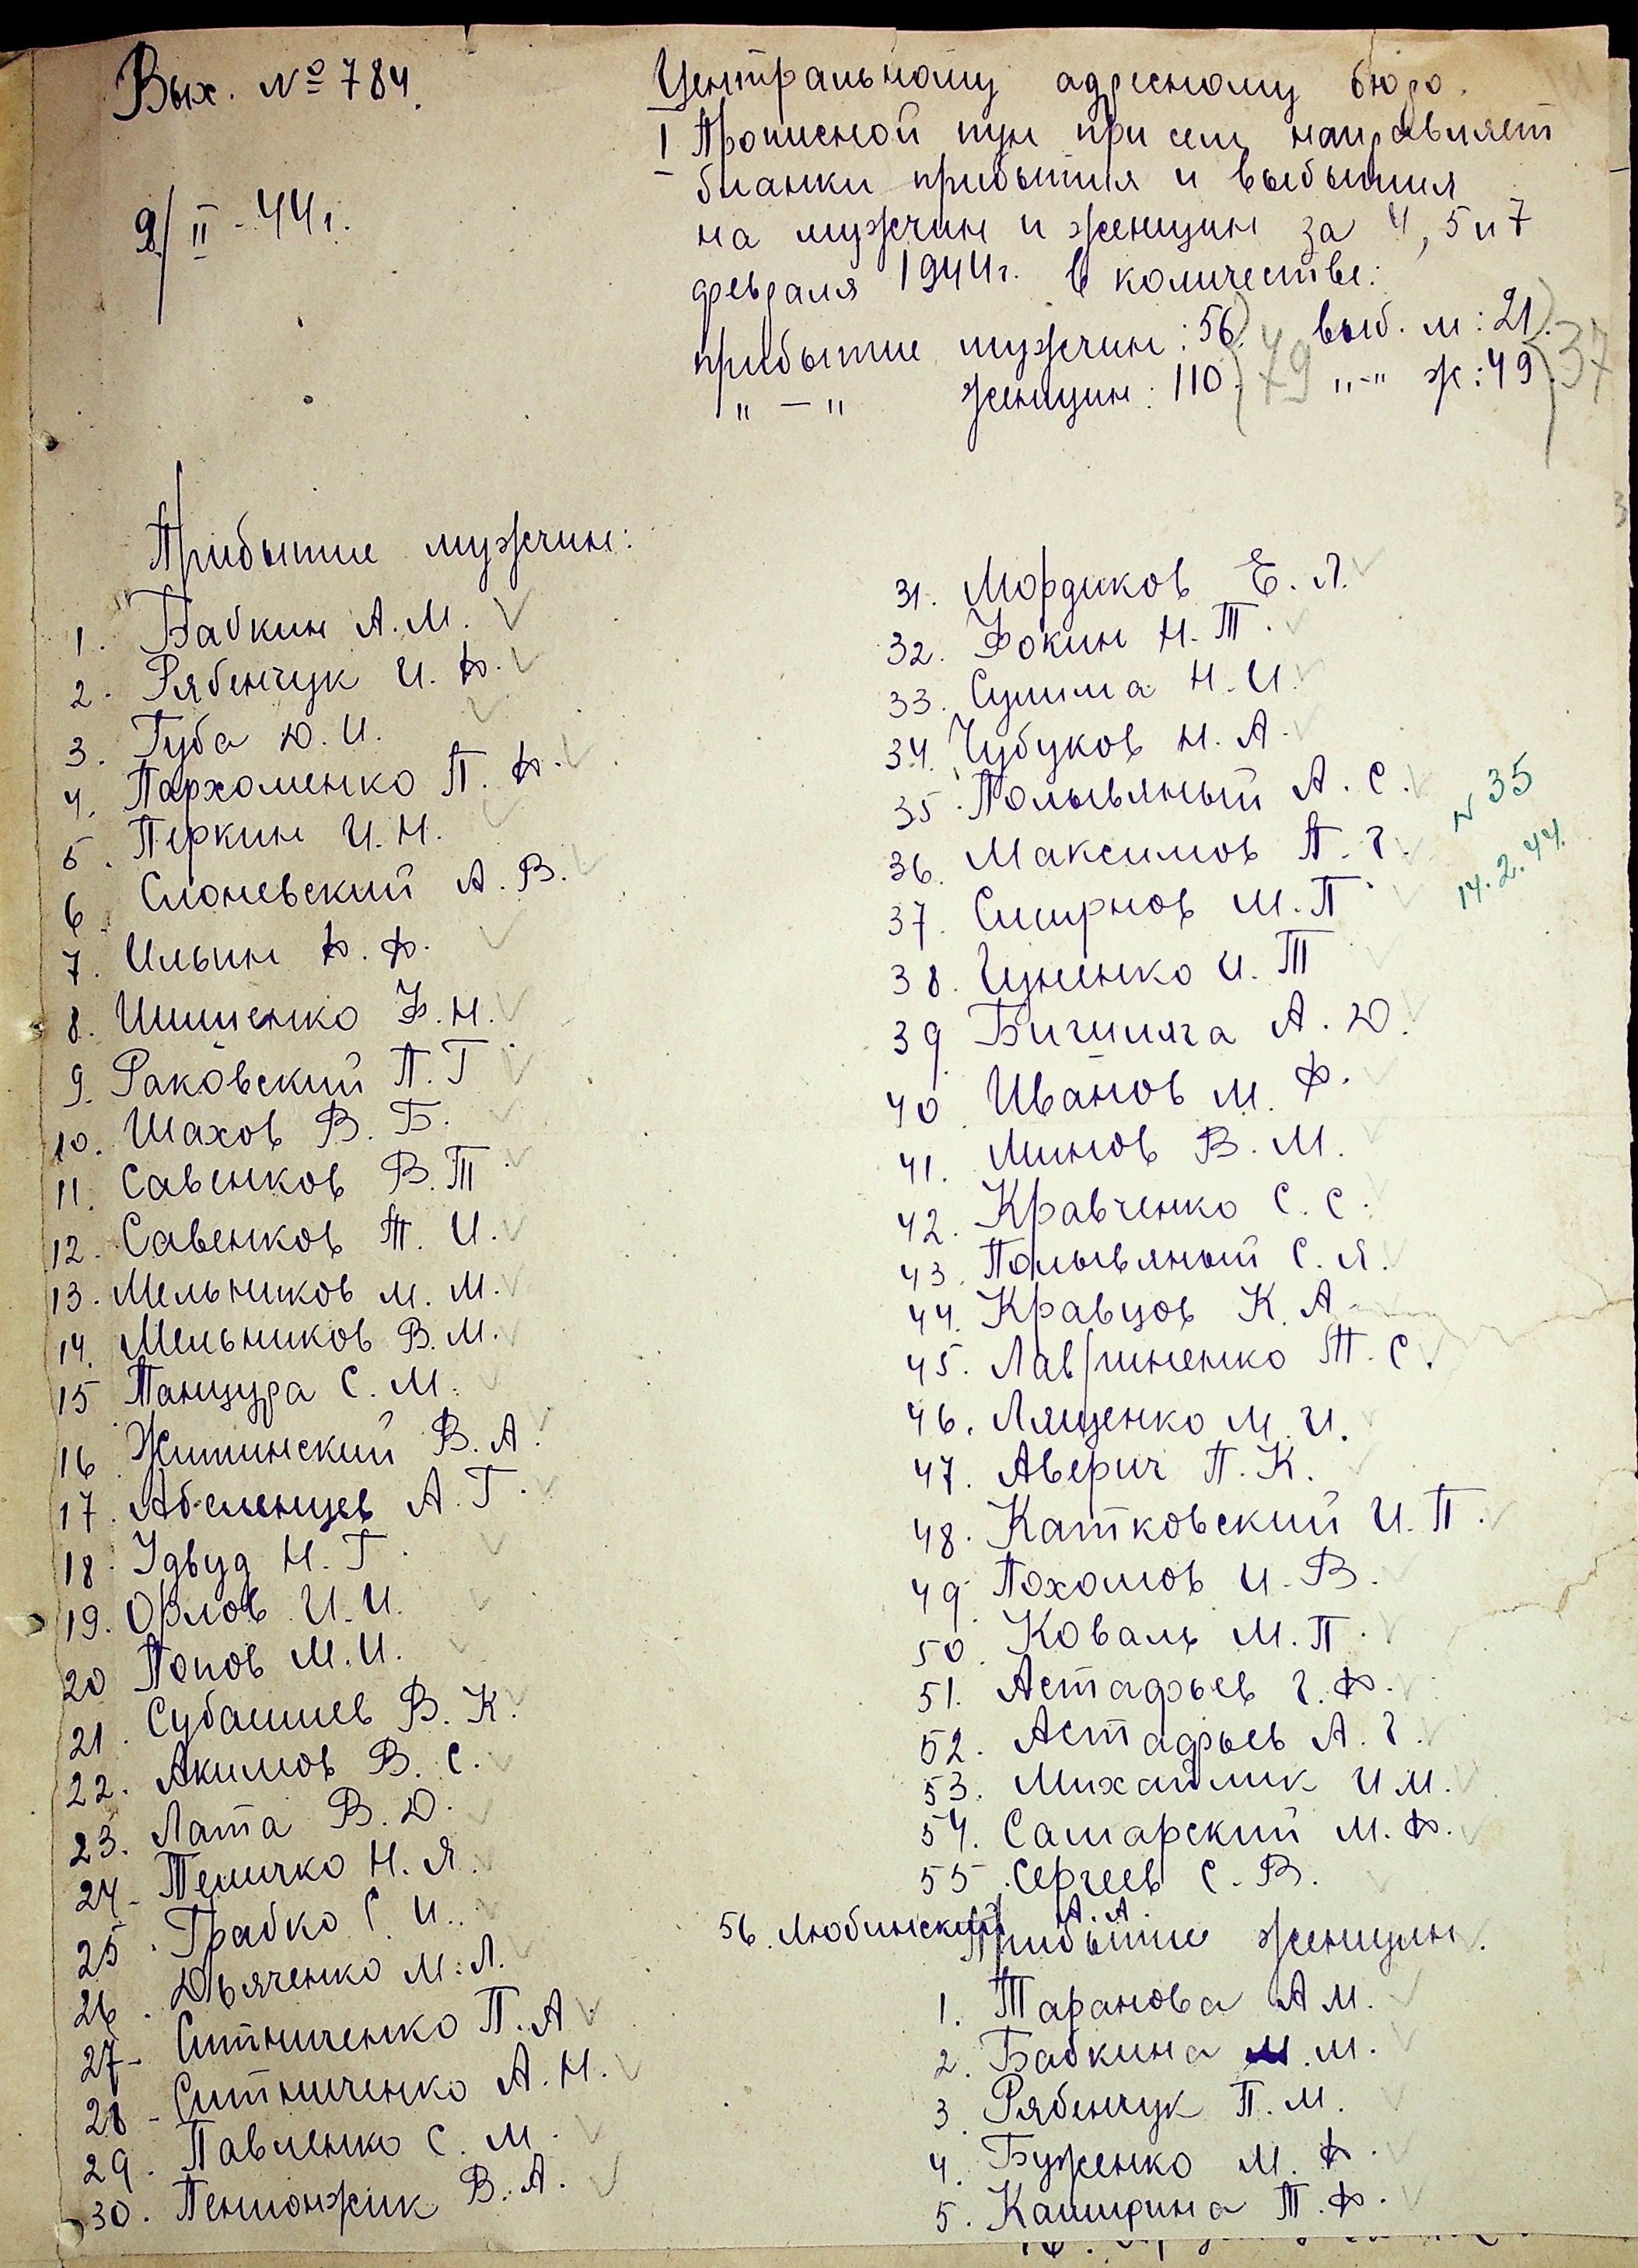 Вых. № 784.
9/II - 44 г.
Центральному адресному бюро.
I Прописной пун при сем направляет
бланки прибытия и выбытия
на мужчин и женщин за 4, 5 и 7
февраля 1944 г. в количестве:
прибытие мужчин: 56. выб. м: 21.
"-" женщин: 110. 79 "-" ж: 49. 37
Прибытие мужчин:
1. Бабкин А.М.
2. Рябенчук И. Ф.
3. Губа Д. И.
4. Пархоменко П. Ф.
5. Перкин И. Н.
6. Слоневский А. В.
7. Ильин Ф. Ф.
8. Ишиенко Ф. Н.
9. Раковский П. Г
10. Шахов В. Б.
11. Савенков В. Т
12. Савенков Т. И.
13. Мельников М. М.
14. Мельников В. М.
15 Панцура С. М.
16 Житинский В. А.
17. Абеленцев А. Г.
18. Удвуд Н. Г.
19. Орлов И. И.
20 Попов М. И.
21. Субашиев В. К.
22. Акимов В. С.
23. Лата В. Д.
24. Теличко Н. Я.
25. Грабко С. И.
26. Дьяченко М. Л.
27- Ситниченко П. А.
28 - Ситниченко А. Н.
29. Павленко С. М.
30. Пенионжик В. А.
31. Мордиков Е. Л.
32. Фокин Н. Т.
33. Сулима Н. И.
34. Чубуков Н. А.
35. Полывяный А. С.
N 35
36. Максимов П. Г.
14. 2. 44.
37. Смирнов М. П.
38. Цуненко И. Т
39 Бигиляга А. Д.
40 Иванов М. Ф.
41. Минов В. М.
42. Кравченко С. С.
43. Полывяный С. Я.
44. Кравцов К. А.
45. Лавриненко Т. С.
46. Лященко М. И.
47. Аверич П. К.
48. Катковский И. П.
49. Похомов И. В.
50. Коваль М. П.
51. Астафьев Г. Ф.
52. Астафьев А. Г.
53. Михайлик И М.
54. Самарский М. Ф.
55. Сергеев С. В.
56. Любинский А. А.
Прибытие женщин.
1. Таранова А М.
2. Бабкина М. М.
3 Рябенчук П. М.
4. Буженко М. Ф.
5. Каширина Т. Ф.